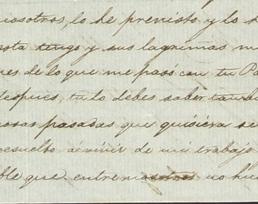 nosotros, lo he previsto, y lo
esta tengo y sus lagrimas
de lo que me pasó con tu
despues, tu lo debes saber
cosas pasadas que quisiera
resuelto a vivir de mi trabajo
ble que entre